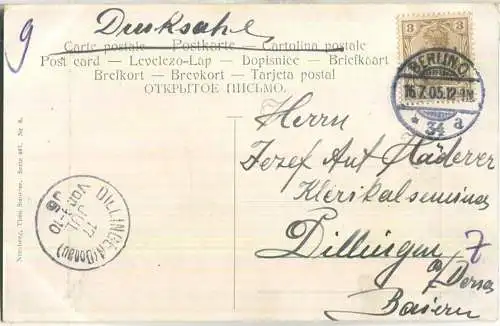 9
Drucksache
Carte postale — Postkarte — Cartolina postale
Post card — Levelezo-Lap — Dopisnice — Briefkaart
Brefkort — Brevkort — Tarjeta postal
ОТКРЫТОЕ ПИСЬМО.
3 3
BERLIN.O
16.7.05.12-1N.
* 34 a
Herrn
Josef Ant
Klerikalseminar
Dillingen
7
a/Donau
Baiern
DILLINGEN(Donau)
17
JUL
VOR.
05
Nürnberg, Theo Stroefer, Serie